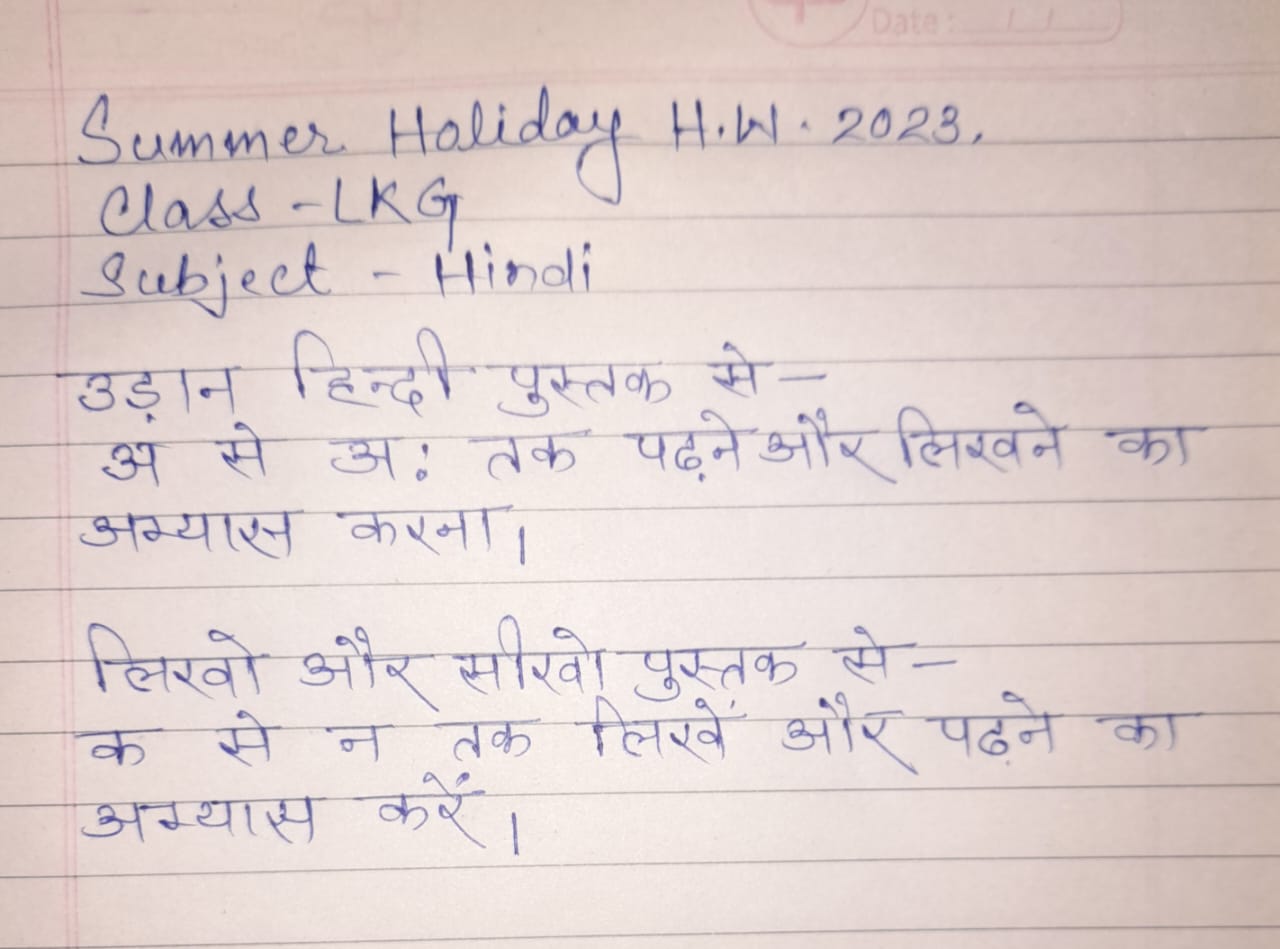 Date :   /   /
Summer Holiday H.W. 2023.
Class - LKG
Subject - Hindi
उड़ान हिन्दी पुस्तक से -
अ से अः तक पढ़ने और लिखने का
अभ्यास करना।
लिखो और सीखो पुस्तक से -
क से न तक लिखें और पढ़ने का
अभ्यास करें।